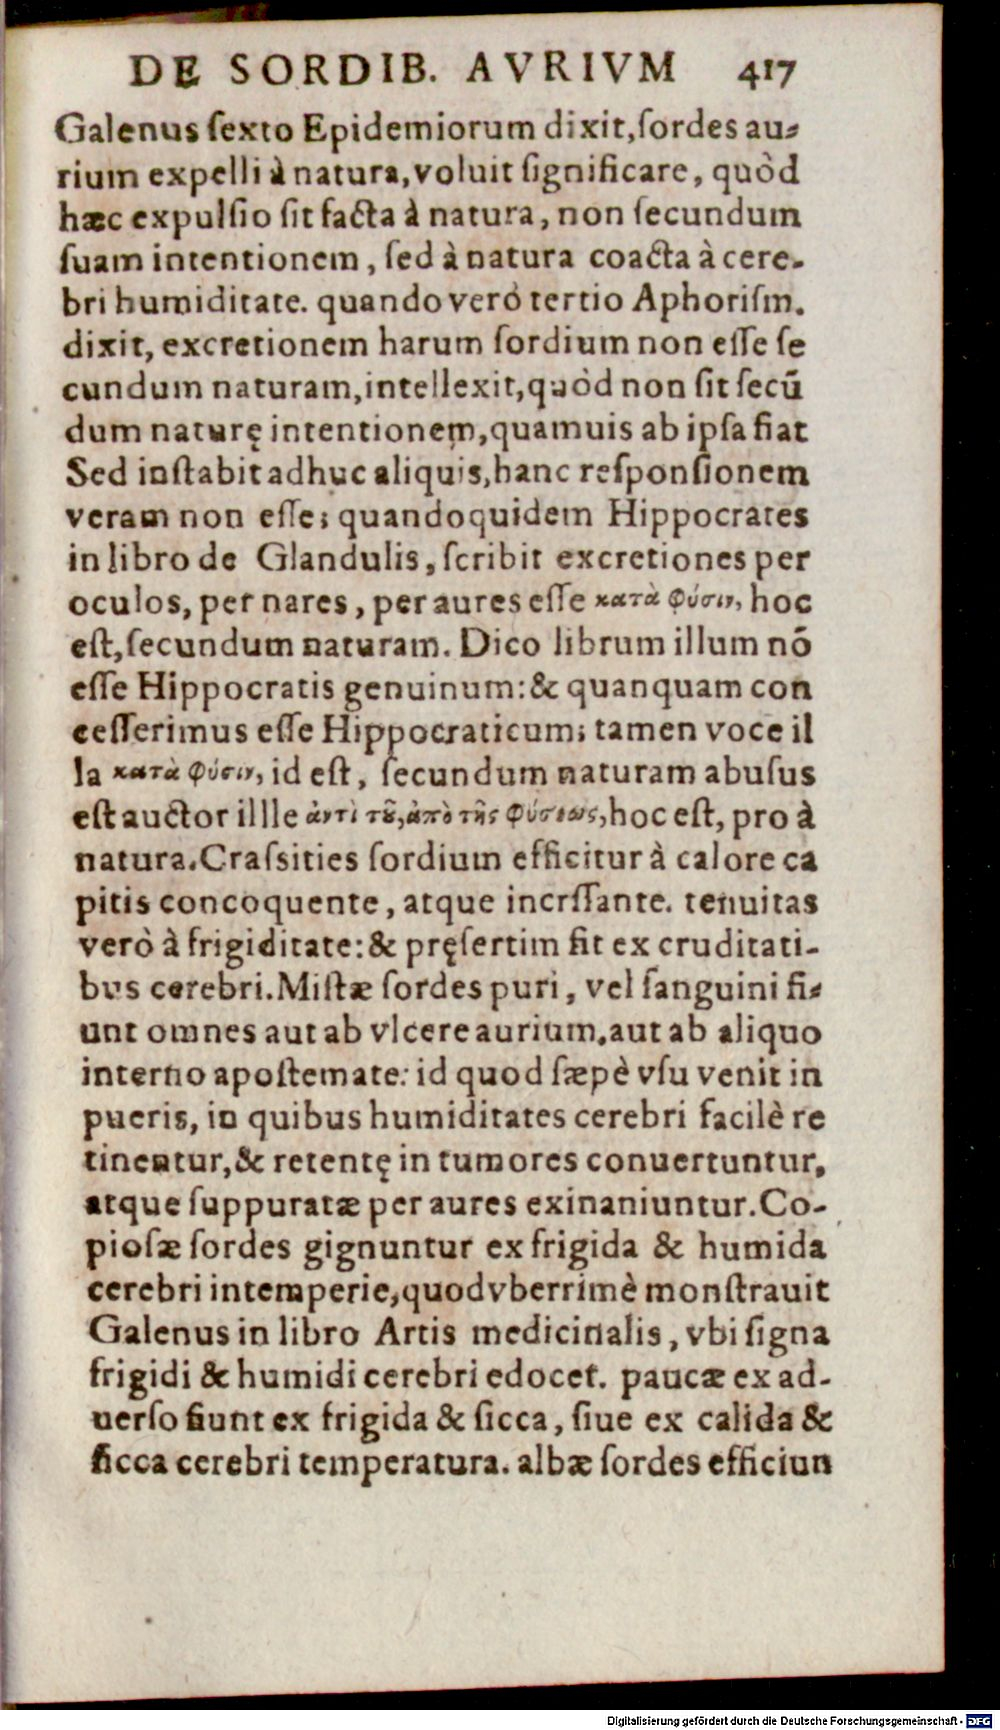 DE SORDIB. AVRIVM 417
Galenus ſexto Epidemiorum dixit,ſordes au⸗
rium expelli à natura,voluit ſignificare, quòd
hæc expulſio ſit facta à natura, non ſecundum
ſuam intentionem, ſed à natura coacta à cere-
bri humiditate. quando verò tertio Aphoriſm.
dixit, excretionem harum ſordium non eſſe ſe
cundum naturam,intellexit,quòd non ſit ſecũ
dum naturę intentionem,quamuis ab ipſa fiat
Sed inſtabit adhuc aliquis,hanc reſponſionem
veram non eſſe; quandoquidem Hippocrates
in libro de Glandulis, ſcribit excretiones per
oculos, per nares, per aures eſſe κατὰ φύσιν, hoc
eſt,ſecundum naturam. Dico librum illum nõ
eſſe Hippocratis genuinum:& quanquam con
ceſſerimus eſſe Hippocraticum; tamen voce il
la κατὰ φύσιν, id eſt, ſecundum naturam abuſus
eſt auctor illle ἀντὶ τȣ͂,ἀπὸ τῆς φύσεως,hoc eſt, pro à
natura.Craſsities ſordium efficitur à calore ca
pitis concoquente, atque incrſſante. tenuitas
verò à frigiditate:& pręſertim fit ex cruditati-
bus cerebri.Miſtæ ſordes puri, vel ſanguini fi⸗
unt omnes aut ab vlcere aurium,aut ab aliquo
interno apoſtemate: id quod ſæpè vſu venit in
pueris, in quibus humiditates cerebri facilè re
tinentur,& retentę in tumores conuertuntur,
atque ſuppuratæ per aures exinaniuntur.Co-
pioſæ ſordes gignuntur ex frigida & humida
cerebri intemperie,quod vberrimè monſtrauit
Galenus in libro Artis medicinalis, vbi ſigna
frigidi & humidi cerebri edocet. paucæ ex ad-
uerſo fiunt ex frigida & ſicca, ſiue ex calida &
ſicca cerebri temperatura. albæ ſordes efficiun
Digitalisierung gefördert durch die Deutsche Forschungsgemeinschaft - DFG